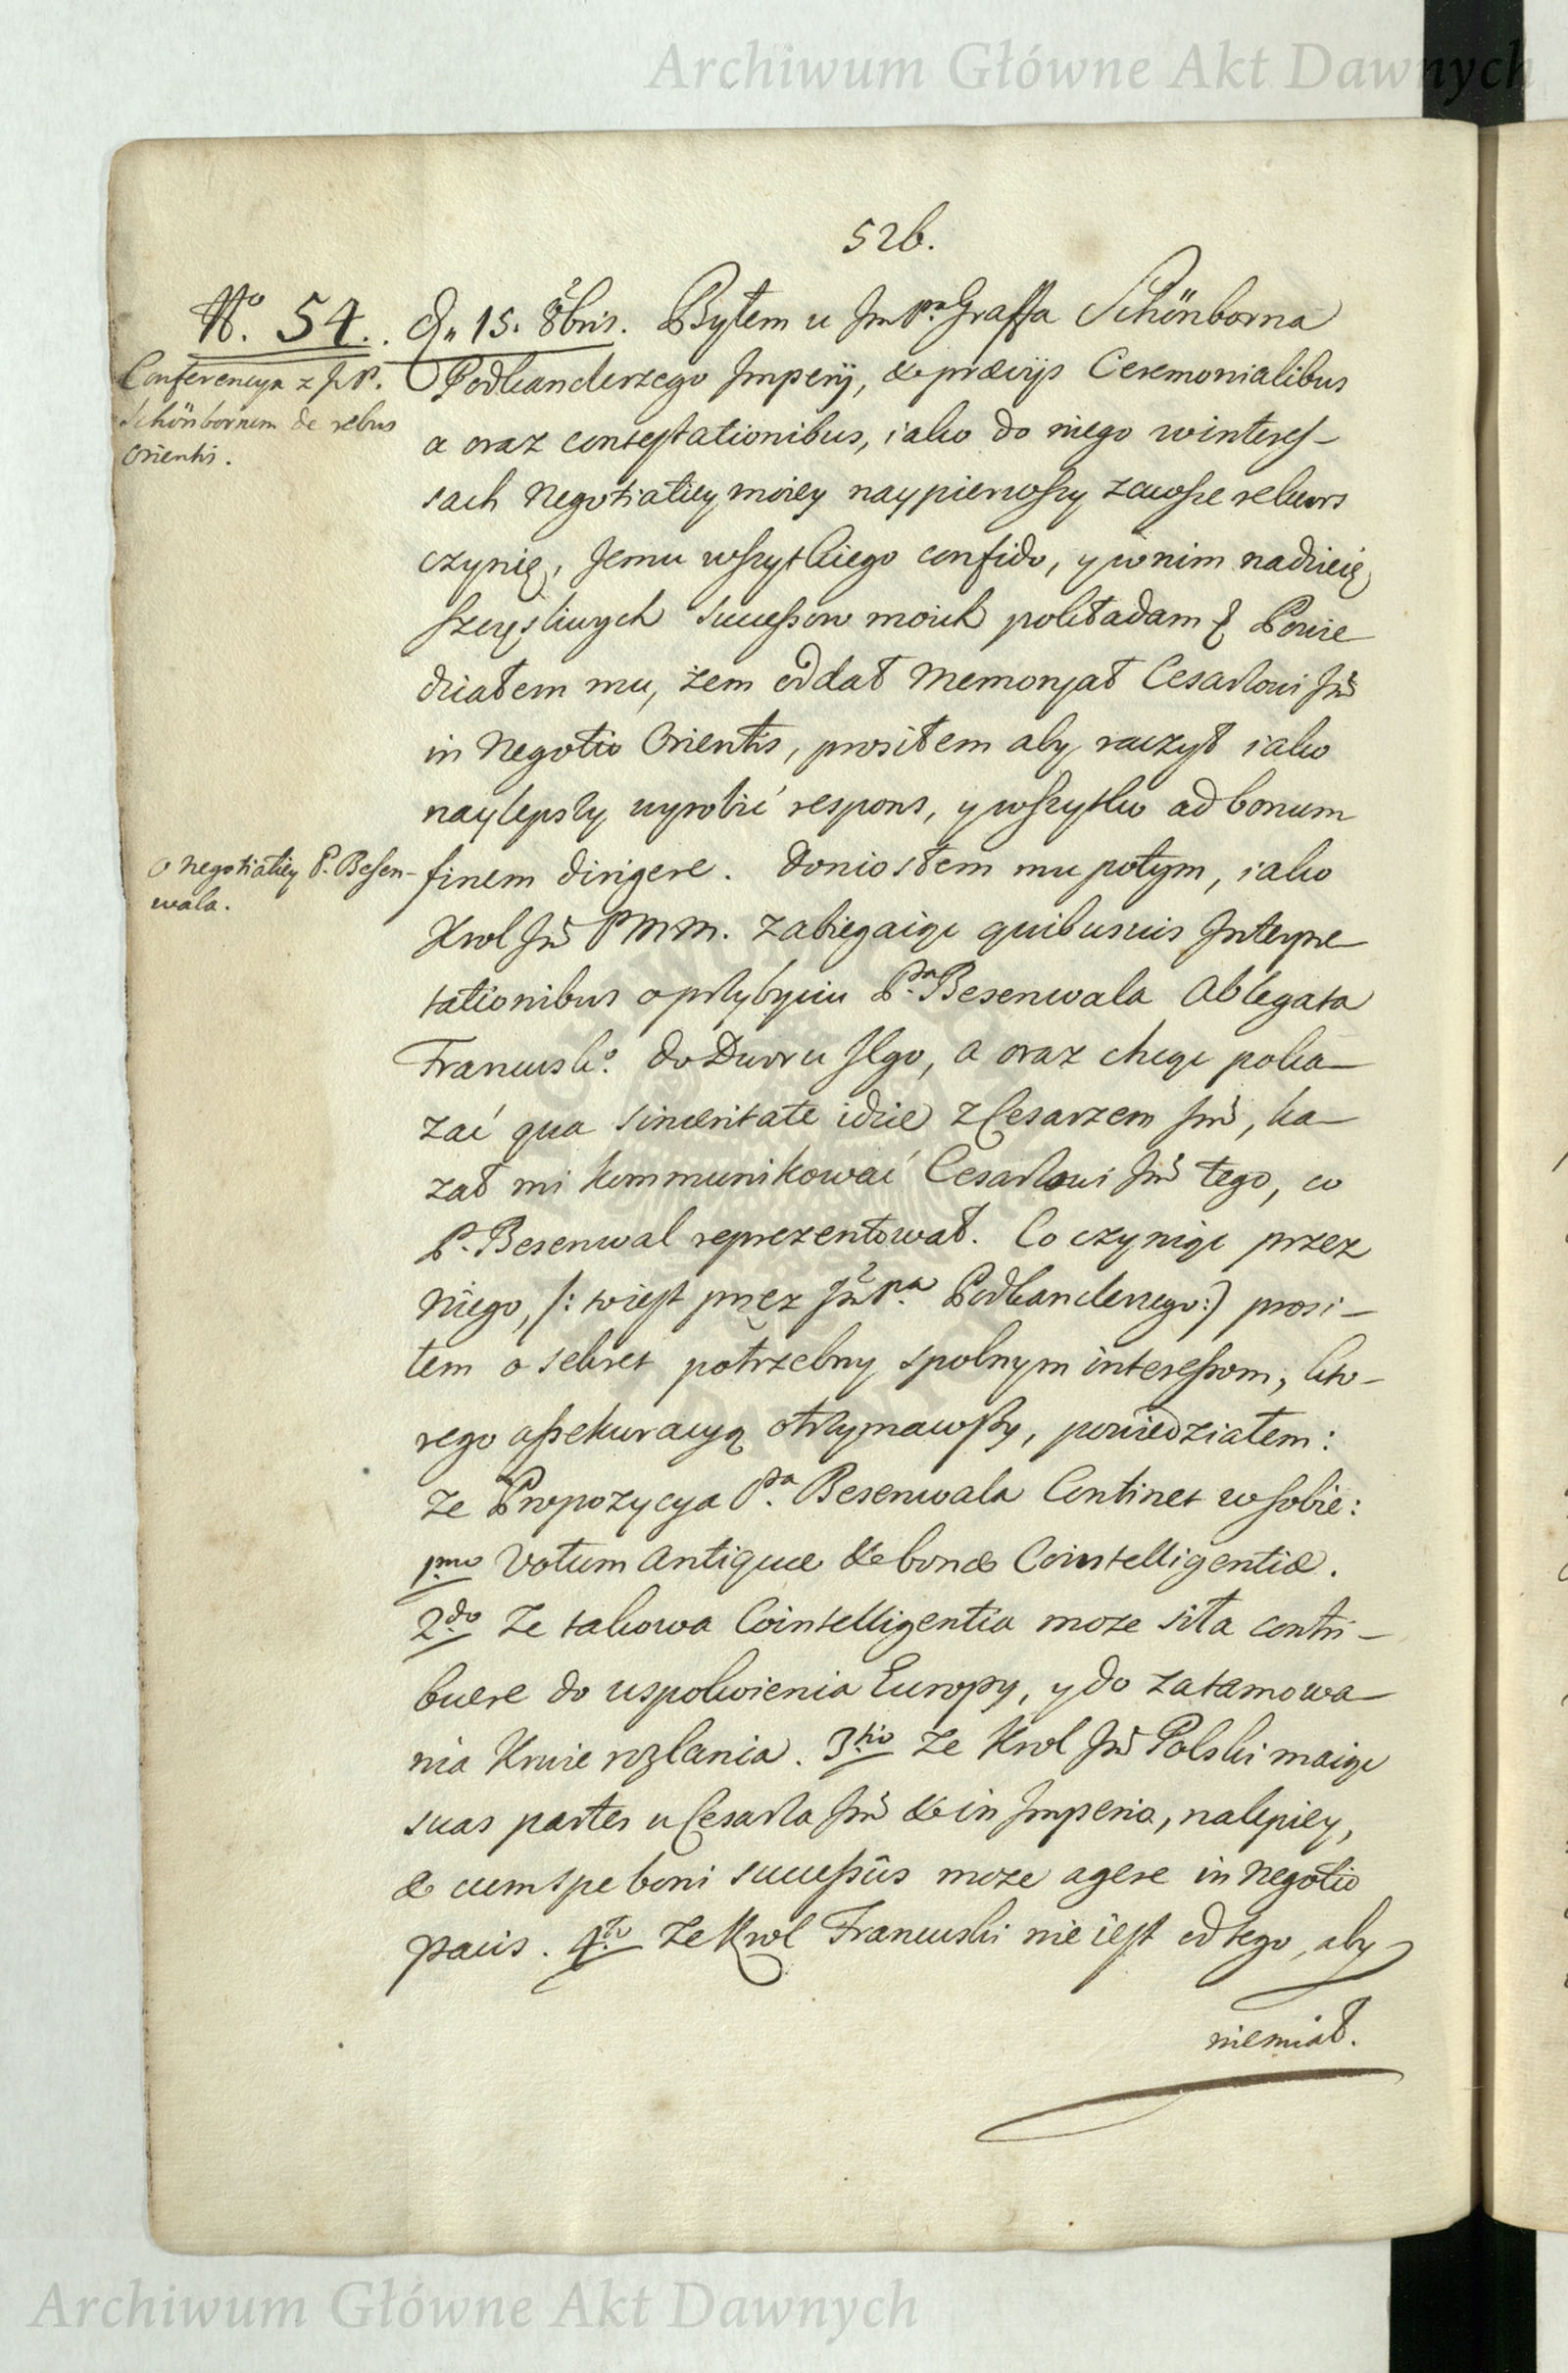 Archiwum Główne Akt Dawnych
526.
No. 54. d. 15. 8bris. Byłem u Jm Pa Graffa Schönborna
Conferencya z J. P.
Schönbornem de rebus
Orientis.
Podkanclerzego Imperÿ, & præviis Ceremonialibus
a oraz contestationibus, iako do niego w interes-
sach Negotiatiey moiey naypierwszy zawsze rekurs
czynię, Jemu wszytkiego confido, y w nim nadzieię
szczęsliwych successow moich pokładam & Powie-
działem mu, żem oddał Memoryał Cesarzowi Jmć
in Negotio Orientis, prosiłem aby raczył iako
naylepszy wyrobić respons, y wszytko ad bonum
o negotiatiey P. Besen-
wala.
finem dirigere. Doniosłem mu potym, iako
Krol Jmć P M m. zabiegaiąc quibusuis Interpre-
tationibus o przybyciu Pa Besenwala Ablegata
Francusko. do Dworu Jego, a oraz chcąc poka-
zać qua sinceritate idzie z Cesarzem Jmć, ka-
zał mi kommunikować Cesarzowi Jmć tego, co
P. Besenwal reprezentował. Co czyniąc przez
niego, /: to iest przez Jm Pa Podkanclerzego :/ prosi-
łem o sekret potrzebny spolnym interessom, kto-
rego assekuracyą otrzymawszy, powiedziałem:
że Propozycya Pa. Besenwala Continet w sobie:
1mo Votum Antiquæ & bonæ Cointelligentiæ.
2do że takowa Cointelligentia może siła contri-
buere do uspokoienia Europy, y do zatamowa-
nia Krwie rozlania. 3tio że Krol Jmć Polski maiąc
suas partes u Cesarza Jmć & in Imperio, nalepiey,
& cum spe boni successûs może agere in Negotio
pacis. 4to że Krol Francuski nie iest od tego, aby
niemiał.
Archiwum Główne Akt Dawnych